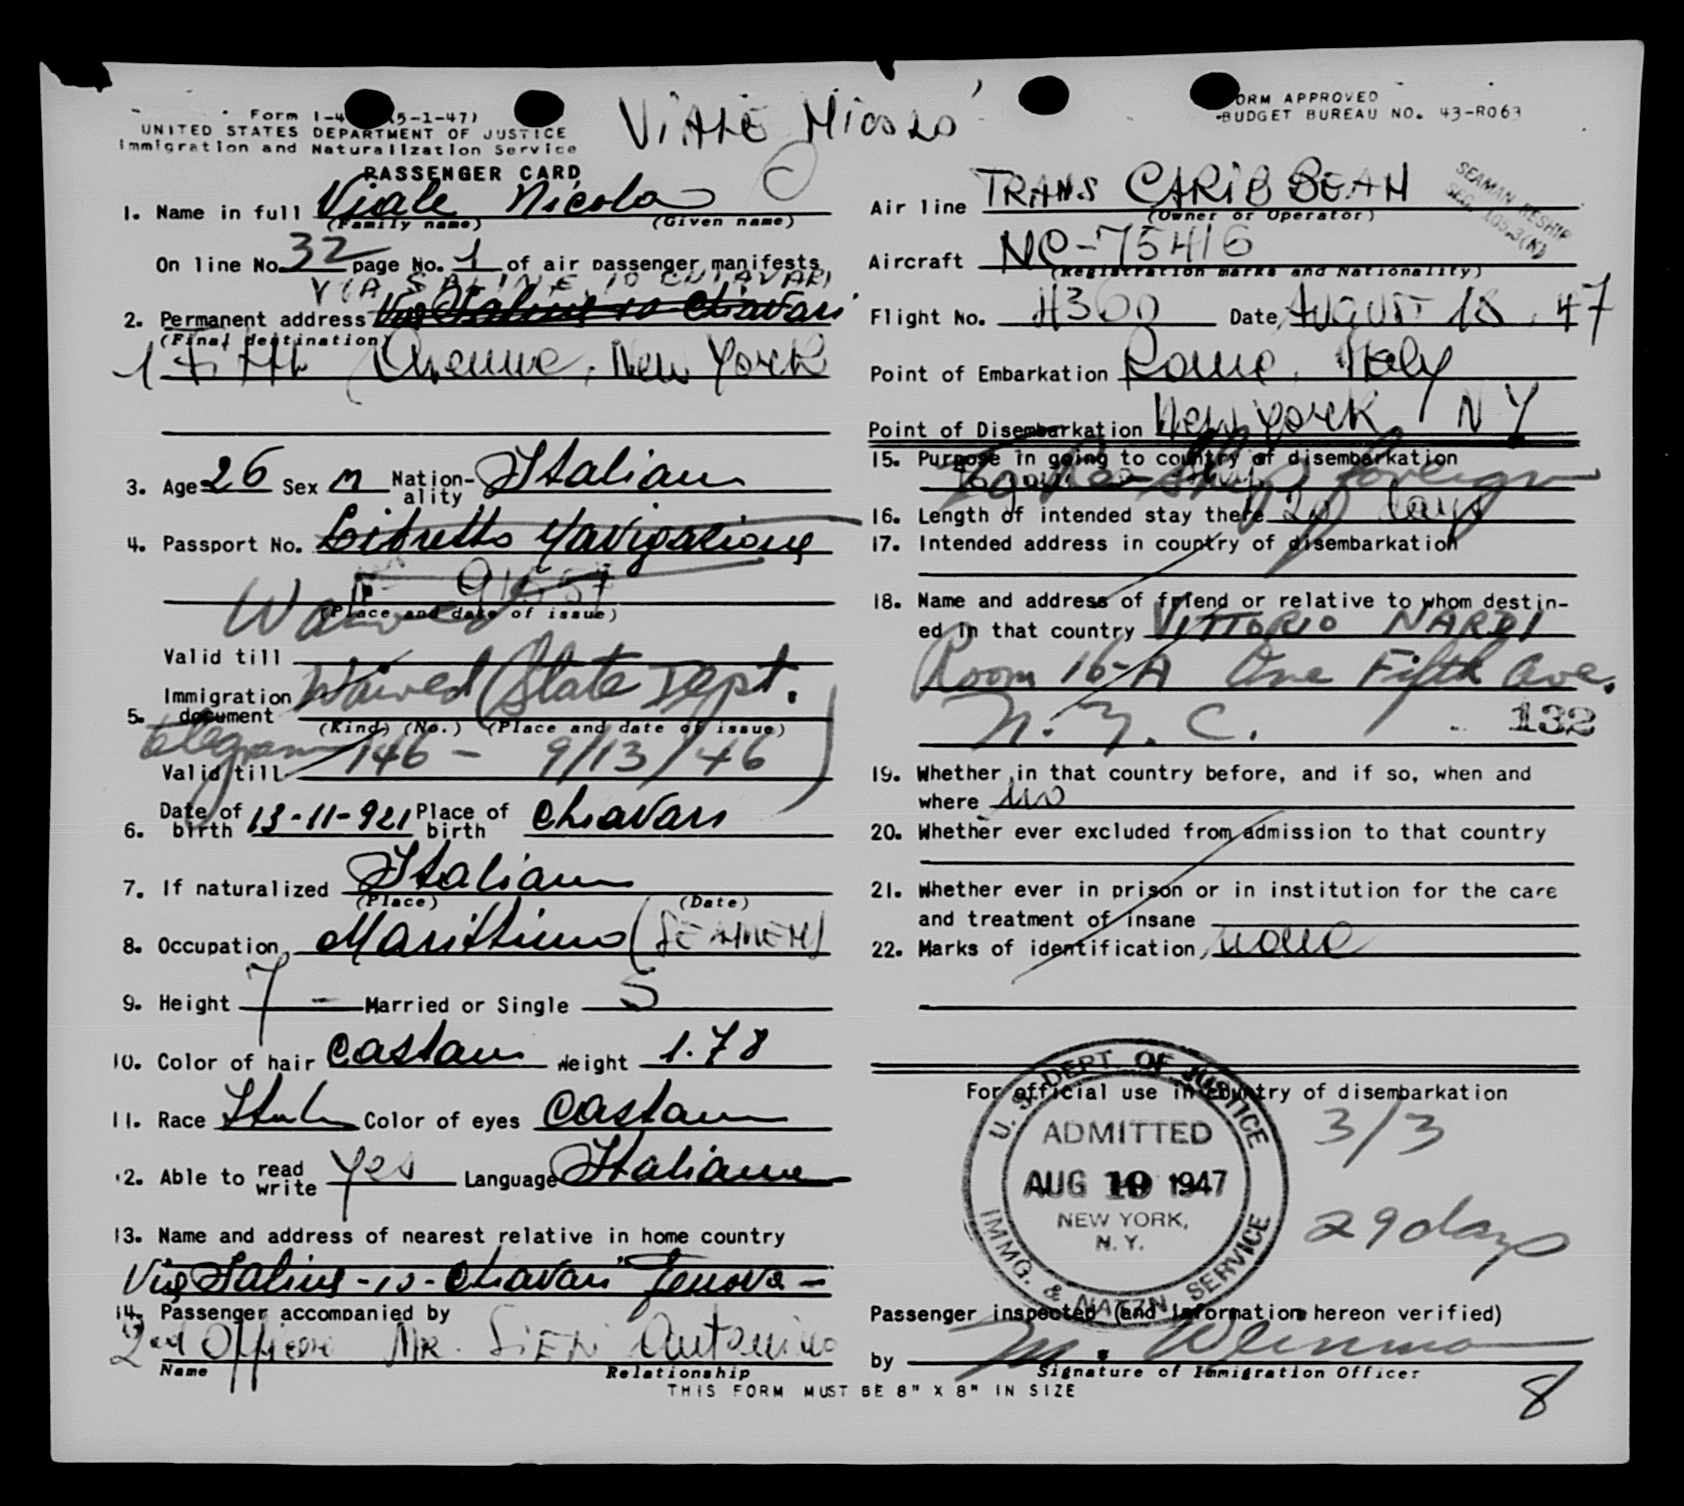 Form I-4 (5-1-47)
UNITED STATES DEPARTMENT OF JUSTICE
Immigration and Naturalization Service
VIALE NICOLO
FORM APPROVED
BUDGET BUREAU NO. 43-R063
PASSENGER CARD
1. Name in full Viale Nicola
(Family name) (Given name)
On line No. 32 page No. 1 of air passenger manifests
VIA SALINE 10 CHIAVARI
2. Permanent address Via Saline 10 Chiavari
(Final destination)
1 Fifth Avenue, New York
3. Age 26 Sex M Nation-ality Italian
4. Passport No. Libretto Navigazione
Waived
(Place and date of issue)
Valid till
Immigration
5. document Waived (State Dept.
(Kind) (No.) (Place and date of issue)
telegram 146 - 9/13/46)
Valid till
6. Date of birth 13-11-921 Place of birth Chiavari
7. If naturalized Italian
(Place) (Date)
8. Occupation Marittimo (SEAMEN)
9. Height 7 - Married or Single S
10. Color of hair Castan Weight 1.78
11. Race Ital Color of eyes Castan
12. Able to read write Yes Language Italiano
13. Name and address of nearest relative in home country
Via Saline - 10 - Chiavari Genova -
14. Passenger accompanied by
2nd Officer MR. Antonino
Name Relationship
THIS FORM MUST BE 8" X 8" IN SIZE
Air line TRANS CARIBBEAN
(Owner or Operator)
SEAMAN RESHIP
Aircraft NC-75416
(Registration marks and Nationality)
Flight No. 4300 Date AUGUST 18, 47
Point of Embarkation Rome, Italy
Point of Disembarkation New York, NY
15. Purpose in going to country of disembarkation
To join ship foreign
16. Length of intended stay there 29 days
17. Intended address in country of disembarkation
18. Name and address of friend or relative to whom destin-
ed in that country VITTORIO NARDI
Room 16-A One Fifth Ave.
N.Y.C. 132
19. Whether in that country before, and if so, when and
where no
20. Whether ever excluded from admission to that country
21. Whether ever in prison or in institution for the care
and treatment of insane
22. Marks of identification none
For official use in country of disembarkation
U. S. DEPT. OF JUSTICE
ADMITTED
AUG 19 1947
NEW YORK,
N. Y.
IMMG. & NATZN. SERVICE
3/3
29 days
Passenger inspected (and information hereon verified)
by M. Weinman
Signature of Immigration Officer
8